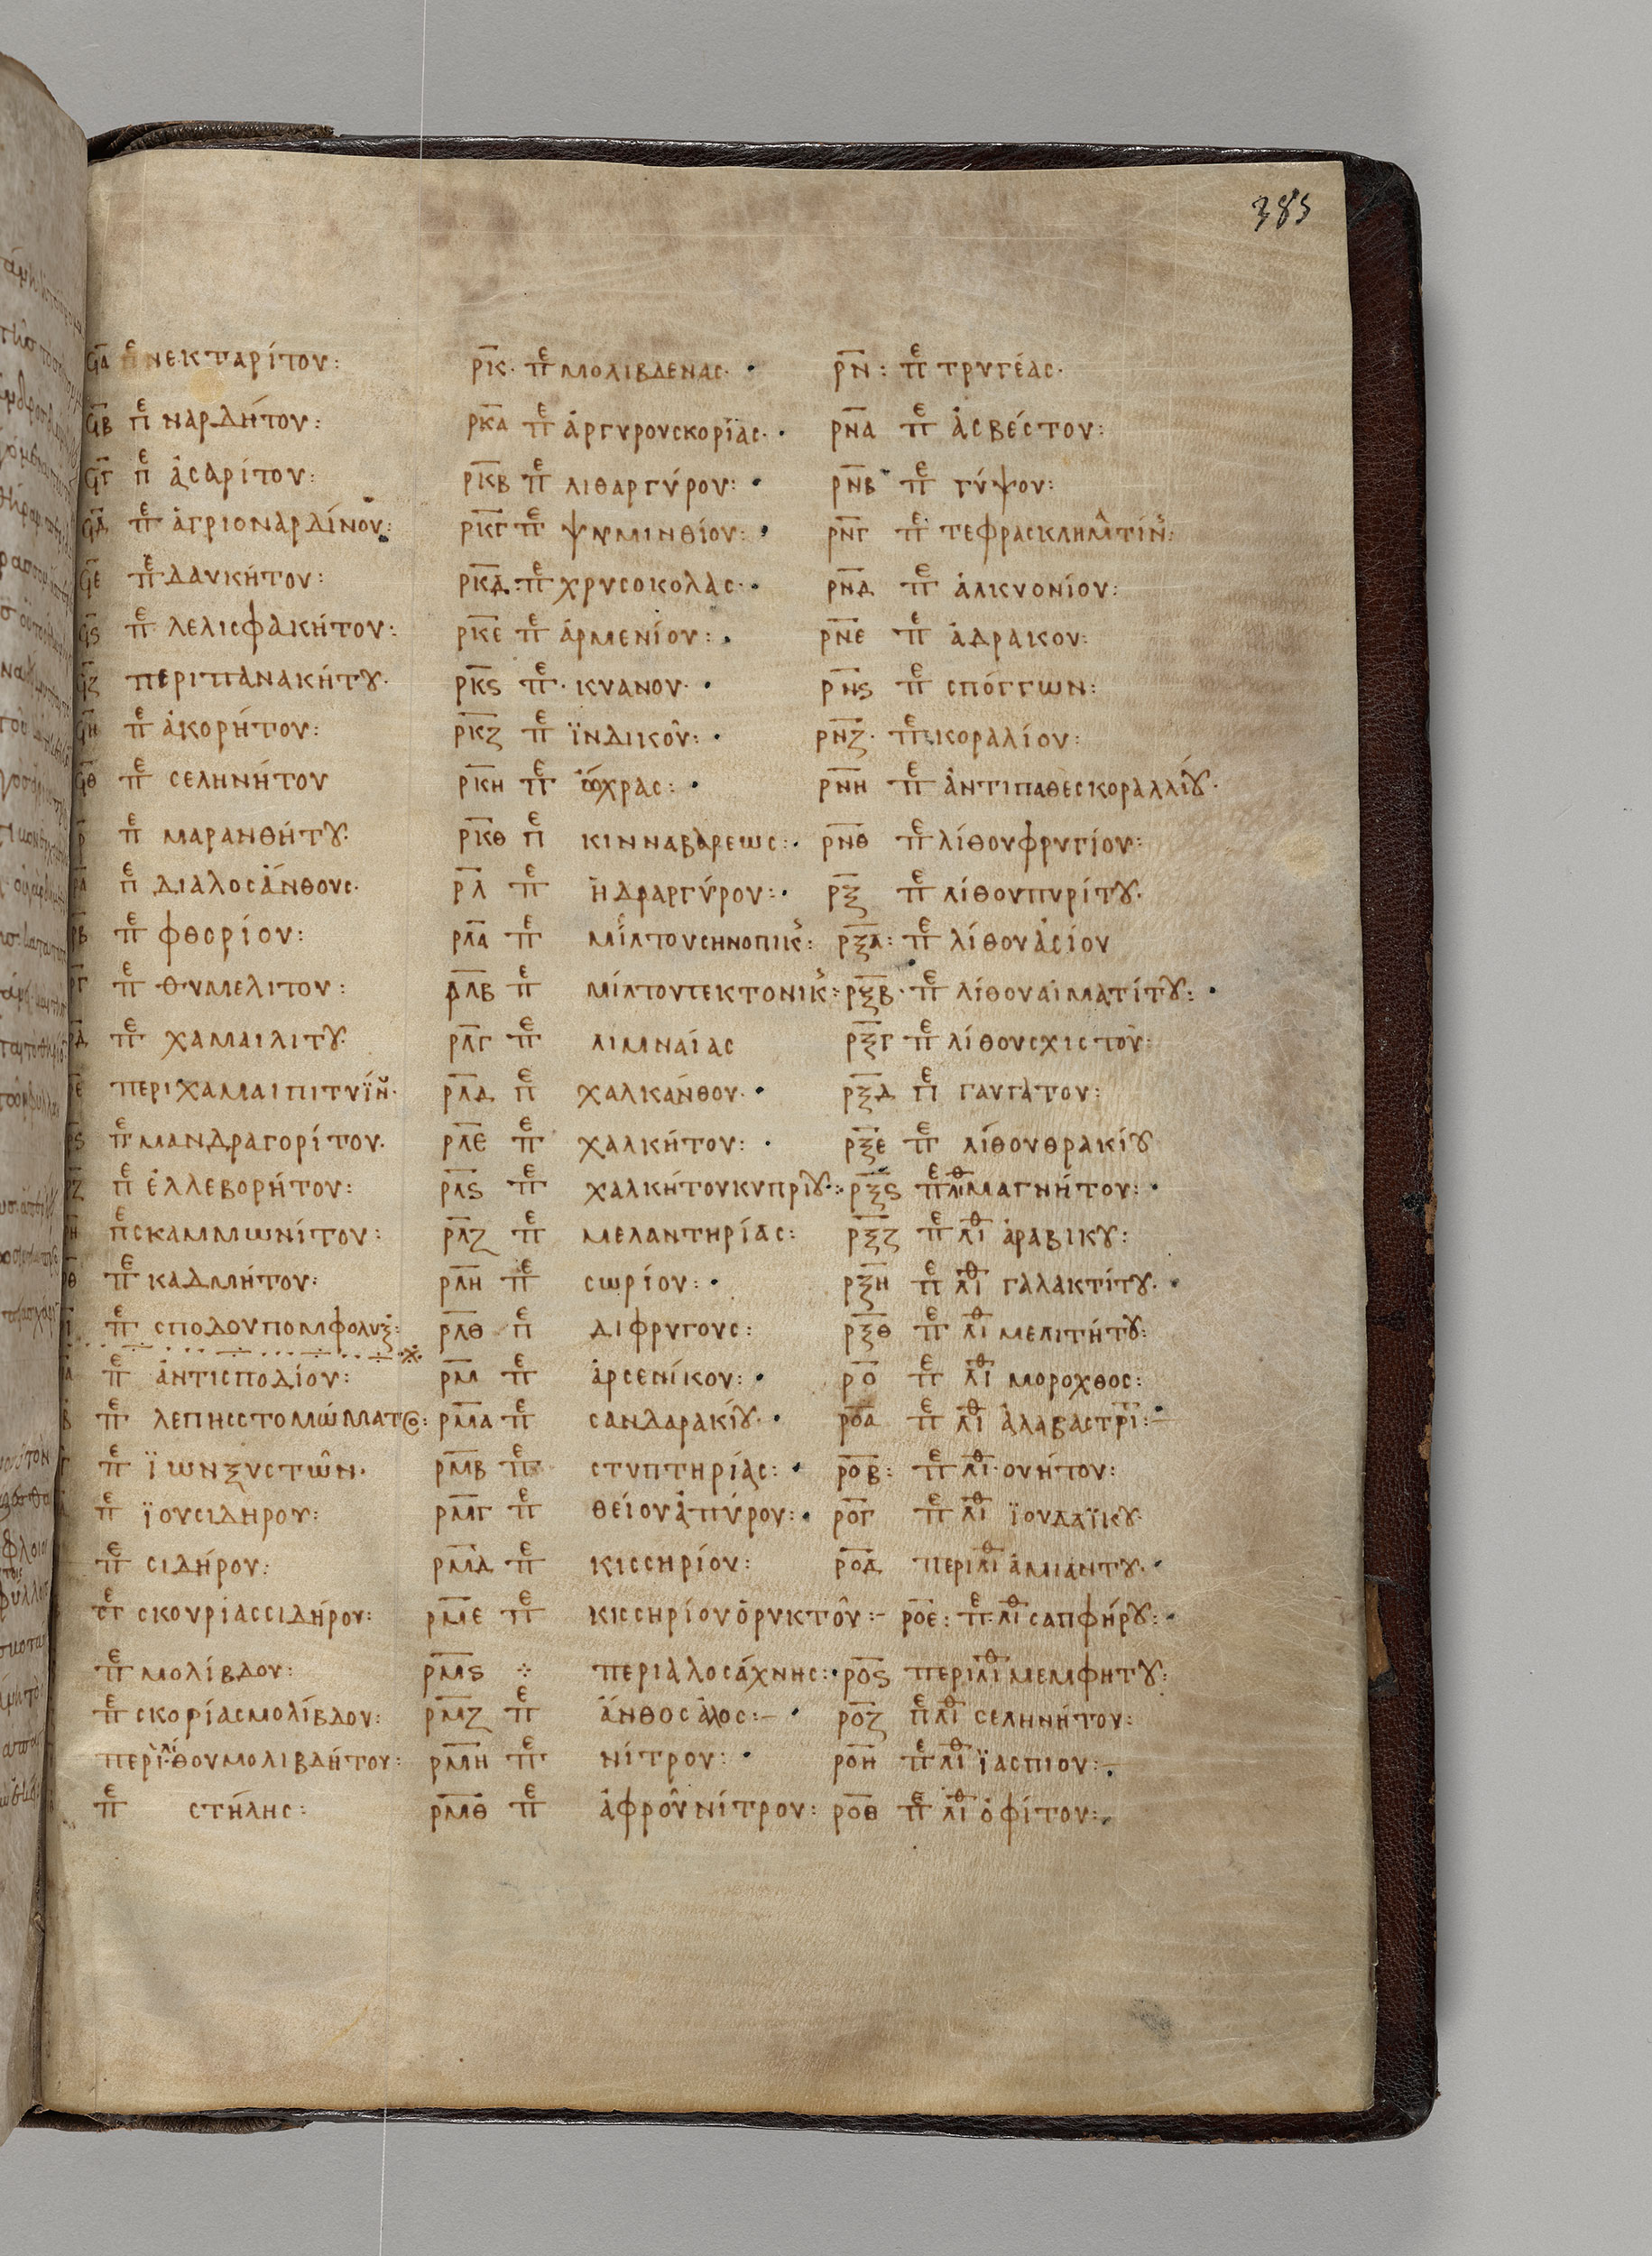 385
ϟα πε νεκταρίτου:
ϟβ πε ναρδήτου:
ϟγ πε ἀσαρίτου:
ϟδ πε ἀγριοναρδίνου:
ϟε πε δαυκήτου:
ϟς πε λελισφακήτου:
ϟζ περιπανακήτȣ·
ϟη πε ἀκορήτου:
ϟθ πε σεληνήτου
ρ πε μαρανθήτȣ·
ρα πε διαλοσάνθους·
ρβ πε φθορίου:
ργ πε θυμελιτου:
ρδ πε χαμαιλιτȣ·
ρε περιχαμαιπιτυΐν·
ρς πε μανδραγορίτου·
ρζ πε ἐλλεβορήτου:
ρη πε σκαμμωνίτου:
ρθ πε καδμήτου:
ρι πε σποδουπομφολυξ:
α πε ἀντισποδίου:
β πε λεπησστομώματο:
γ πε ϊωνξυστῶν·
δ πε ϊουσιδηρου:
πε σιδήρου:
πε σκουριασσιδήρου:
πε μολίβδου:
πε σκορίασμολίβδου:
περιλίθουμολιβδήτου:
πε στήλης:
ρκ· πε μολιβδενας·
ρκα πε ἀργυρουσκορΐας·
ρκβ πε λιθαργύρου:
ρκγ πε ψημινθίου:
ρκδ: πε χρυσοκολας·
ρκε πε ἀρμενίου:
ρκς πε· κυανου·
ρκζ πε ϊνδικοῦ:
ρκη πε ὤχρας:
ρκθ πε κινναβαρεως:
ρλ πε ἡδραργύρου:
ρλα πε μίλτουσηνοπικ:
ρλβ πε μίλτουτεκτονικ:
ρλγ πε λιμναίας
ρλδ πε χαλκάνθου·
ρλε πε χαλκήτου:
ρλς πε χαλκήτουκυπρίȣ·
ρλζ πε μελαντηρίας:
ρλη πε σωρίου:
ρλθ πε διφρυγους:
ρμ πε ἀρσενίκου:
ρμα πε σανδαρακίȣ·
ρμβ πε στυπτηρίας:
ρμγ πε θείουἀπύρου:
ρμδ πε κισσηρίου:
ρμε πε κισσηρίουὀρυκτοῦ:-
ρμς ÷ περιαλοσάχνης:
ρμζ πε ἄνθοσάλος:-
ρμη πε νίτρου:
ρμθ πε ἀφροῦνίτρου:
ρν: πε τρυγέας·
ρνα πε ἀσβέστου:
ρνβ πε γύψου:
ρνγ πε τεφρασκληματίν:
ρνδ πε ἀλκυονίου:
ρνε πε ἀδρακου:
ρνς πε σπόγγων:
ρνζ· πε κοραλίου:
ρνη πε ἀντιπαθεσκοραλλίȣ·
ρνθ πε λίθουφρυγίου:
ρξ πε λίθουπυρίτȣ·
ρξα: πε λίθουἀσίου
ρξβ· πε λίθουαἱματίτȣ:
ρξγ πε λίθουσχιστοῦ:
ρξδ πε γαυγατου:
ρξε πε λίθουθρακίȣ
ρξς πε λιθ μαγνήτου:
ρξζ πε λιθ ἀραβικȣ:
ρξη πε λιθ γαλακτίτȣ·
ρξθ πε λιθ μελιτήτȣ:
ρο πε λιθ μοροχθος:
ροα πε λιθ ἀλαβαστρι:-
ροβ: πε λιθ· ουήτου:
ρογ πε λιθ ϊουδαϊκȣ·
ροδ περιλιθ ἀμιάντȣ·
ροε: πε λιθ σαπφήρȣ:
ρος περιλιθ μεμφητȣ:
ροζ πε λιθ σεληνήτου:
ροη πε λιθ ϊασπιου:
ροθ πε λιθ ὀφίτου: